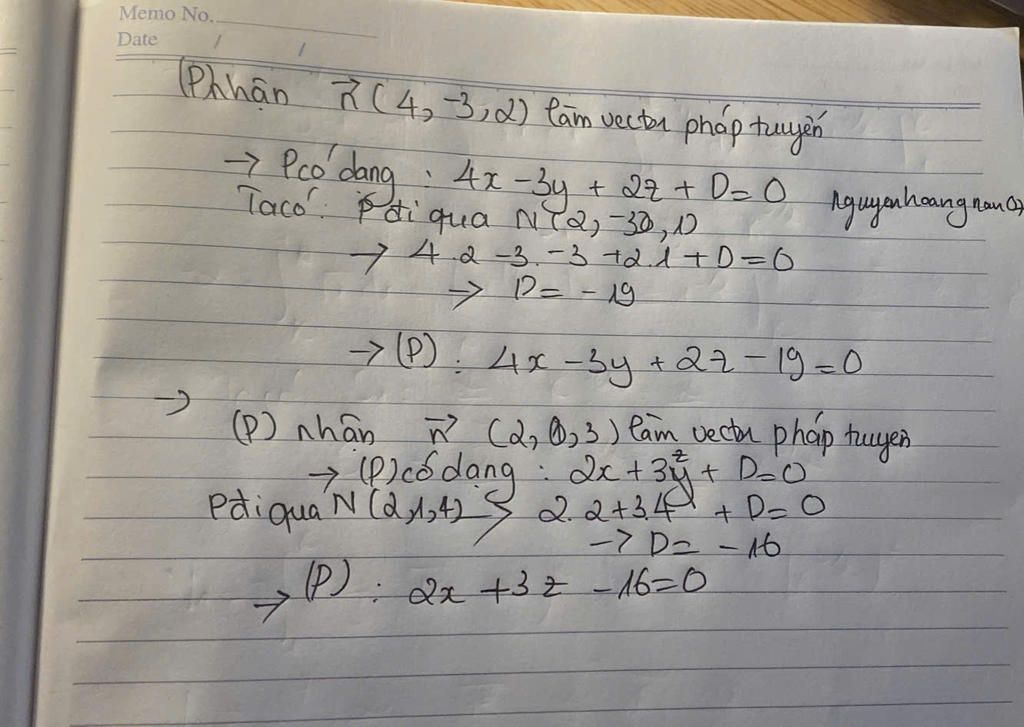 Memo No.
Date / /
(P) nhận n⃗ (4, -3, 2) làm vector pháp tuyến
→ P có dạng : 4x - 3y + 2z + D = 0
Ta có : P đi qua N (2, -3, 1)
→ 4.2 - 3.-3 + 2.1 + D = 0
→ D = -19
→ (P) : 4x - 3y + 2z - 19 = 0
→
(P) nhận n⃗ (2, 0, 3) làm vector pháp tuyen
→ (P) có dạng : 2x + 3z + D = 0
P đi qua N (2, 1, 4) → 2.2 + 3.4 + D = 0
→ D = -16
→ (P) : 2x + 3z - 16 = 0